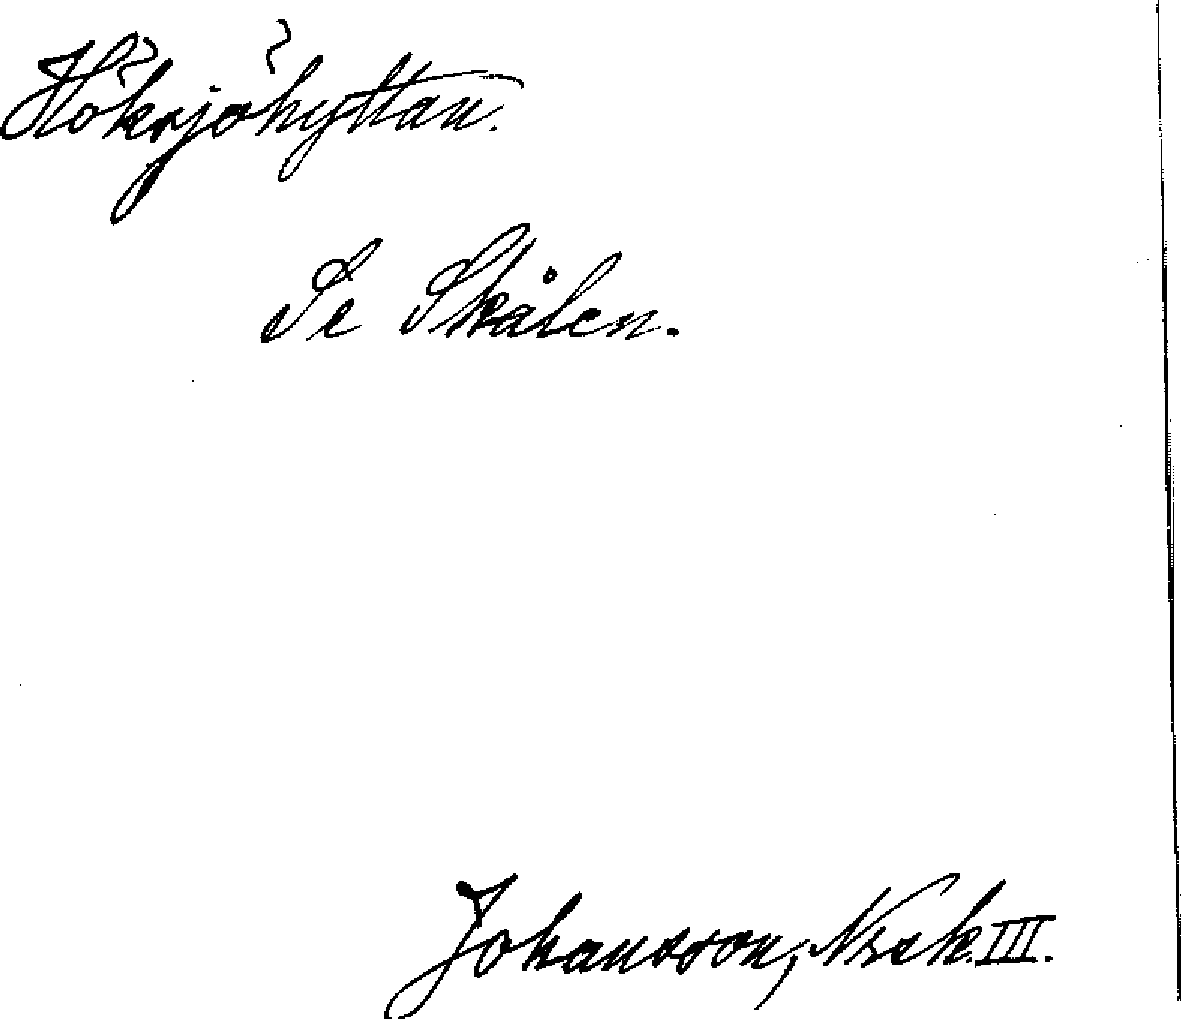 Höksjöhyttan.
Se Skålen.
Johansson, Nssk. III.